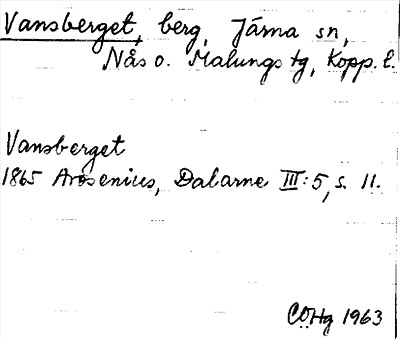 Vansberget, berg, Järna sn,
Nås o. Malungs tg, Kopp. l.
Vansberget
1865 Arosenius, Dalarne III:5, s. 11.
CÖHg 1963